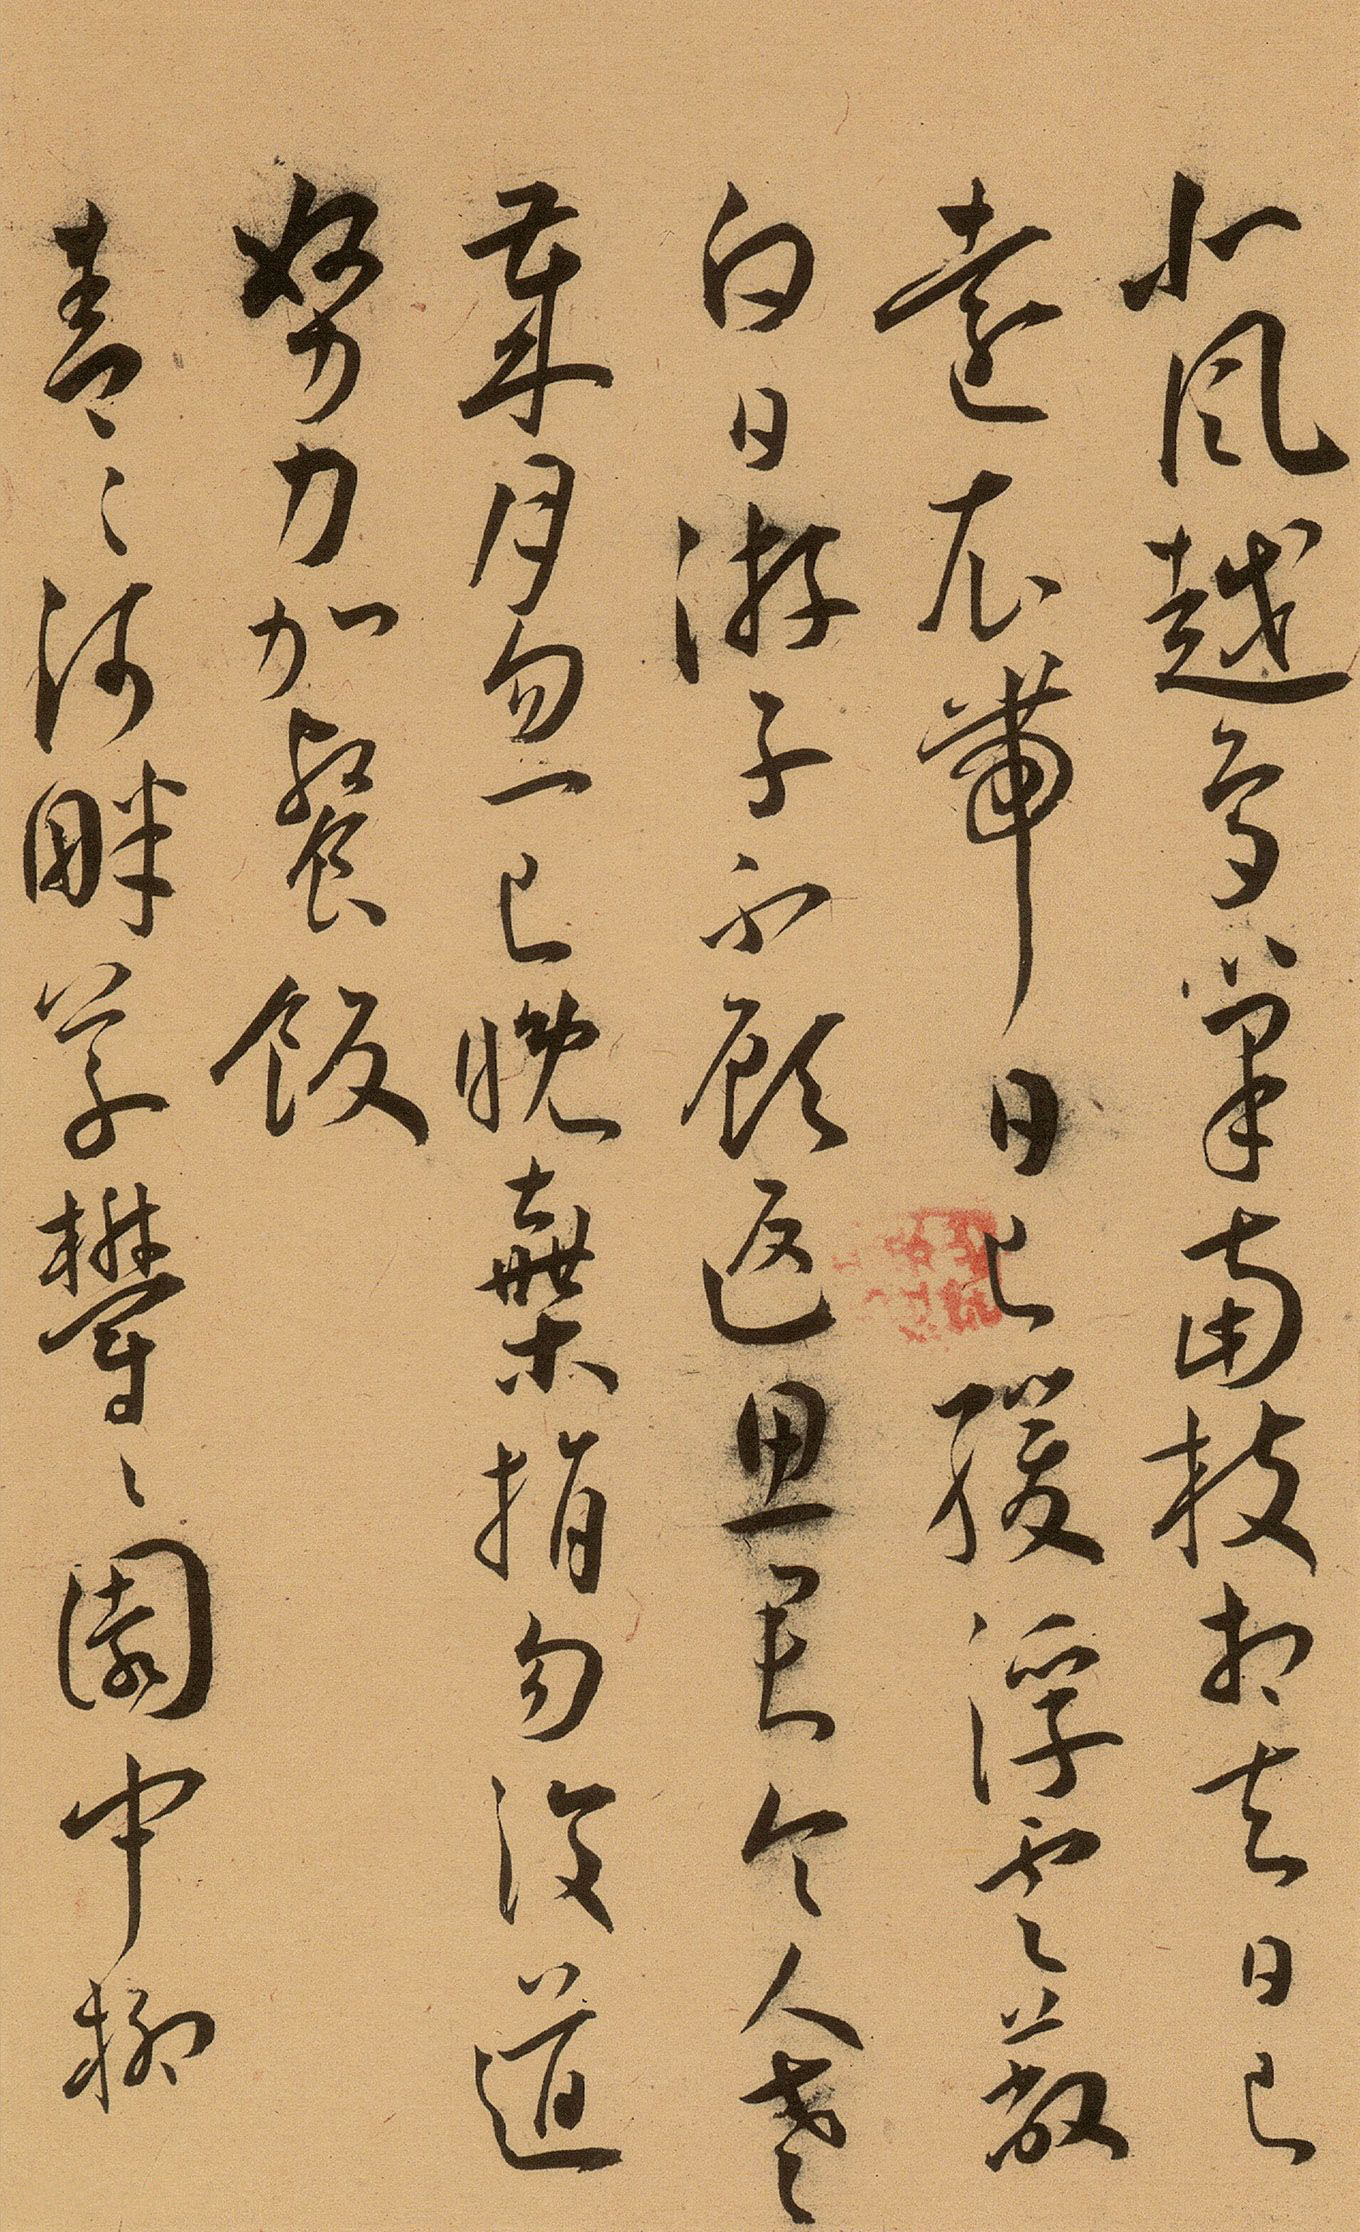 北風越鳥巢南枝相去日已
遠衣帶日已緩浮雲蔽
白日游子不顧返思君令人老
歲月忽已晚棄捐勿復道
努力加餐飯
青〻河畔草鬱〻園中柳